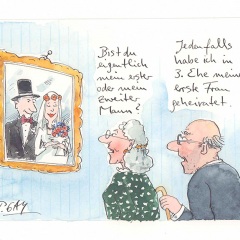 Bist du
eigentlich
mein erster
oder mein
zweiter
Mann?
Jedenfalls
habe ich in
3. Ehe meine
erste Frau
geheiratet.
P. GAY